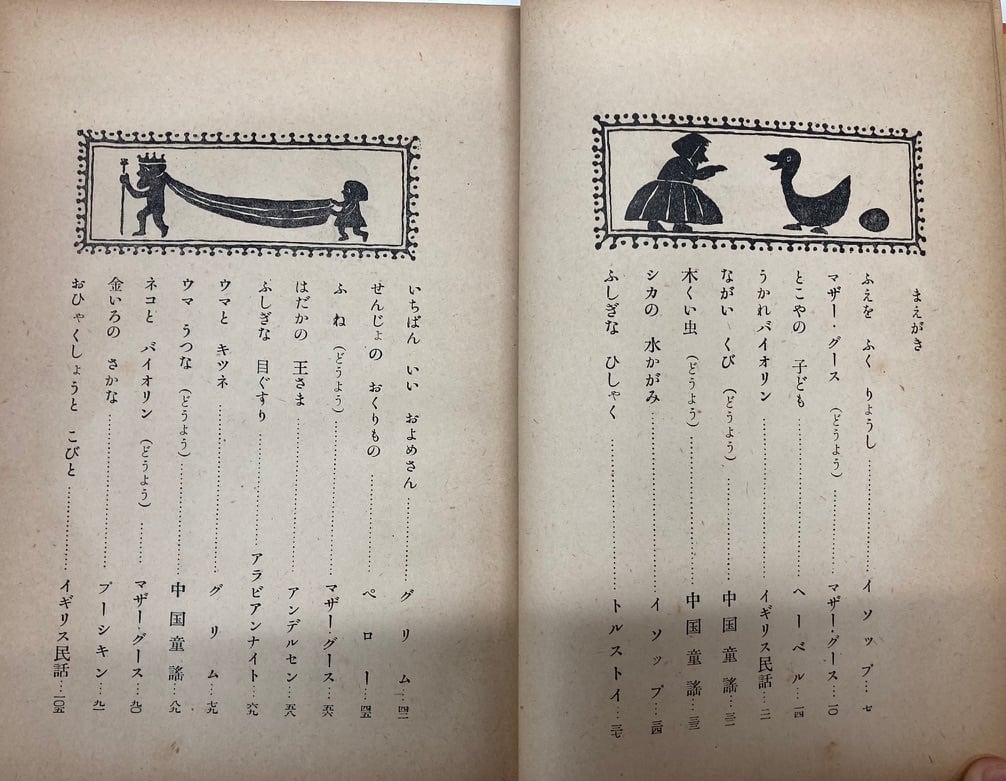 まえがき
ふえを ふく りょうし……イソップ…七
マザー・グース（どうよう）……マザー・グース…一〇
とこやの 子ども……ヘーベル…一四
うかれバイオリン……イギリス民話…二一
ながい くび（どうよう）……中国童謠…三二
木くい虫（どうよう）……中国童謠…三三
シカの 水かがみ……イソップ…三四
ふしぎな ひしゃく……トルストイ…三七
いちばん いい およめさん……グリム…四一
せんじょの おくりもの……ペロー…四五
ふね（どうよう）……マザー・グース…五六
はだかの 王さま……アンデルセン…五八
ふしぎな 目ぐすり……アラビアンナイト…六九
ウマと キツネ……グリム…七九
ウマ うつな（どうよう）……中国童謠…八九
ネコと バイオリン（どうよう）……マザー・グース…九〇
金いろの さかな……プーシキン…九一
おひゃくしょうと こびと……イギリス民話…一〇五